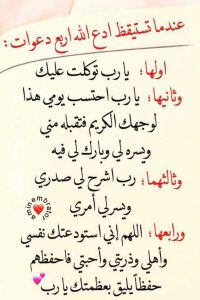 عندما تستيقظ ادع الله اربع دعوات :
اولها؛ يارب توكلت عليك
وثانيها؛ يارب احتسب يومي هذا
لوجهك الكريم فتقبله مني
ويسره لي وبارك لي فيه
وثالثهما؛ رب اشرح لي صدري
ويسرلي أمري
ورابعها؛ اللهم إني استودعتك نفسي
وأهلي وذريتي وأحبتي فاحفظهم
حفظاً يليق بعظمتك يارب